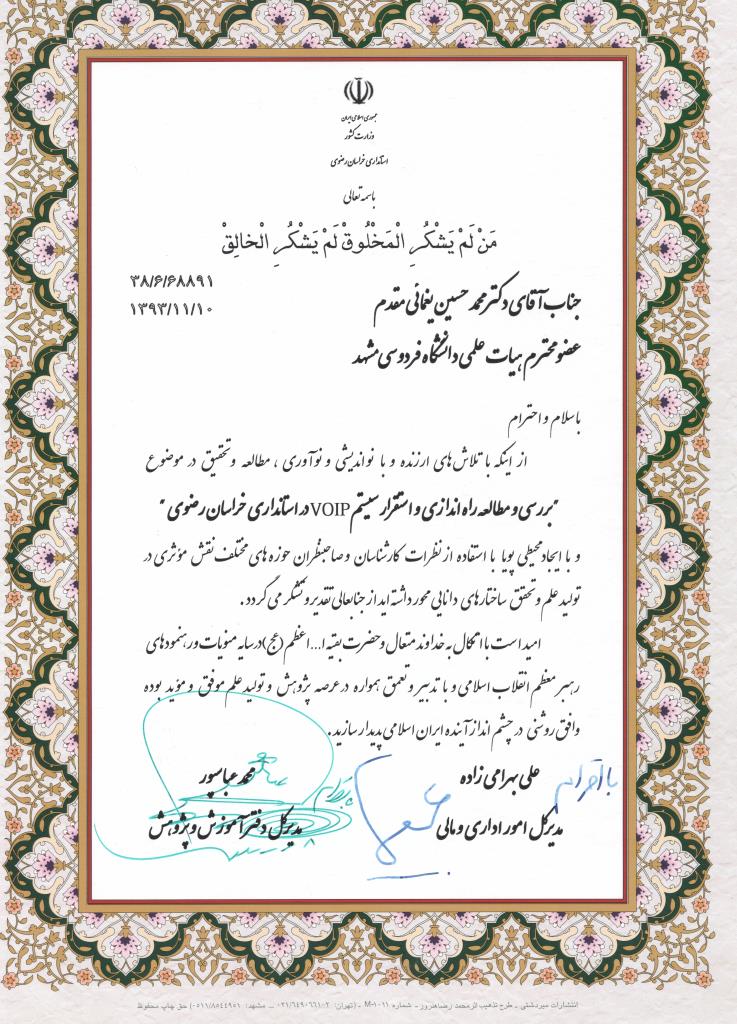 جمهوری اسلامی ایران
وزارت کشور
استانداری خراسان رضوی
باسمه تعالی
مَنْ لَمْ یَشْکُرِ الْمَخْلُوقْ لَمْ یَشْکُرِ الْخالِقْ
۳۸/۶/۶۸۸۹۱
۱۳۹۳/۱۱/۱۰
جناب آقای دکتر محمد حسین یغمائی مقدم
عضو محترم هیات علمی دانشگاه فردوسی مشهد
باسلام و احترام
از اینکه با تلاش های ارزنده و با نواندیشی و نوآوری ، مطالعه و تحقیق در موضوع
"بررسی و مطالعه راه اندازی و استقرار سیستم VOIP در استانداری خراسان رضوی "
و با ایجاد محیطی پویا با استفاده از نظرات کارشناسان و صاحبنظران حوزه های مختلف نقش مؤثری در
تولید علم و تحقق ساختارهای دانایی محور داشته اید از جنابعالی تقدیر و تشکر می گردد .
امید است با اتکال به خداوند متعال و حضرت بقیه ا... اعظم (عج) در سایه منویات و رهنمودهای
رهبر معظم انقلاب اسلامی و با تدبیر و تعمق همواره در عرصه پژوهش و تولید علم موفق و مؤید بوده
وافق روشنی در چشم انداز آینده ایران اسلامی پدیدار سازید .
با احترام
علی بهرامی زاده
محمد عباسپور
مدیرکل امور اداری و مالی
مدیرکل دفتر آموزش و پژوهش
انتشارات میردشتی _ طرح تذهیب اثرمحمد رضاهنرور_ شماره M-۱۰۱۱ _ (تهران: ۰۲۱/۶۴۹۰۶۶۱-۲ ... مشهد: ۰۵۱۱/۸۵۴۴۹۵۱) حق چاپ محفوظ